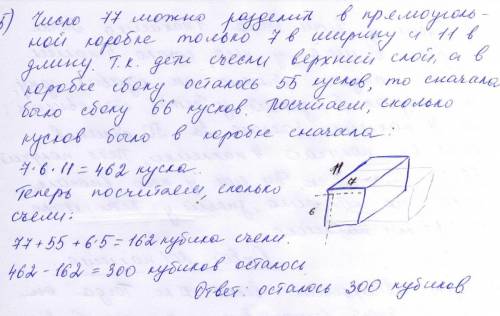 5) Число 77 можно разделить в прямоуголь-
ной коробке только 7 в ширину и 11 в
длину. Т.к. дети съели верхний слой, а в
коробке сбоку осталось 55 кусков, то сначала
было сбоку 66 кусков. Посчитаем, сколько
кусков было в коробке сначала:
7·6·11 = 462 куска.
Теперь посчитаем, сколько
съели:
11
7
6
77 + 55 + 6·5 = 162 кубика съели.
462 - 162 = 300 кубиков осталось
Ответ: осталось 300 кубиков